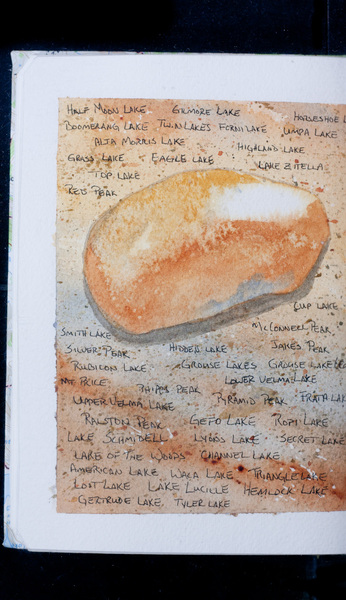 Half Moon Lake Gilmore Lake Horseshoe L
Boomerang Lake Twin Lakes Forni Lake Umpa Lake
Alta Morris Lake Highland Lake
Grass Lake Eagle Lake Lake Zitella
Top Lake
Red Peak
Cup Lake
Smith Lake McConnell Peak
Silver Peak Hidden Lake Jakes Peak
Rubicon Lake Grouse Lakes Grouse Lake
Mt Price Phipps Peak Lower Velma Lake
Upper Velma Lake Pyramid Peak Lake
Ralston Peak Gefo Lake Ropi Lake
Lake Schmidell Lyons Lake Secret Lake
Lake of the Woods Channel Lake
American Lake Waca Lake Triangle Lake
Lost Lake Lake Lucille Hemlock Lake
Gertrude Lake Tyler Lake